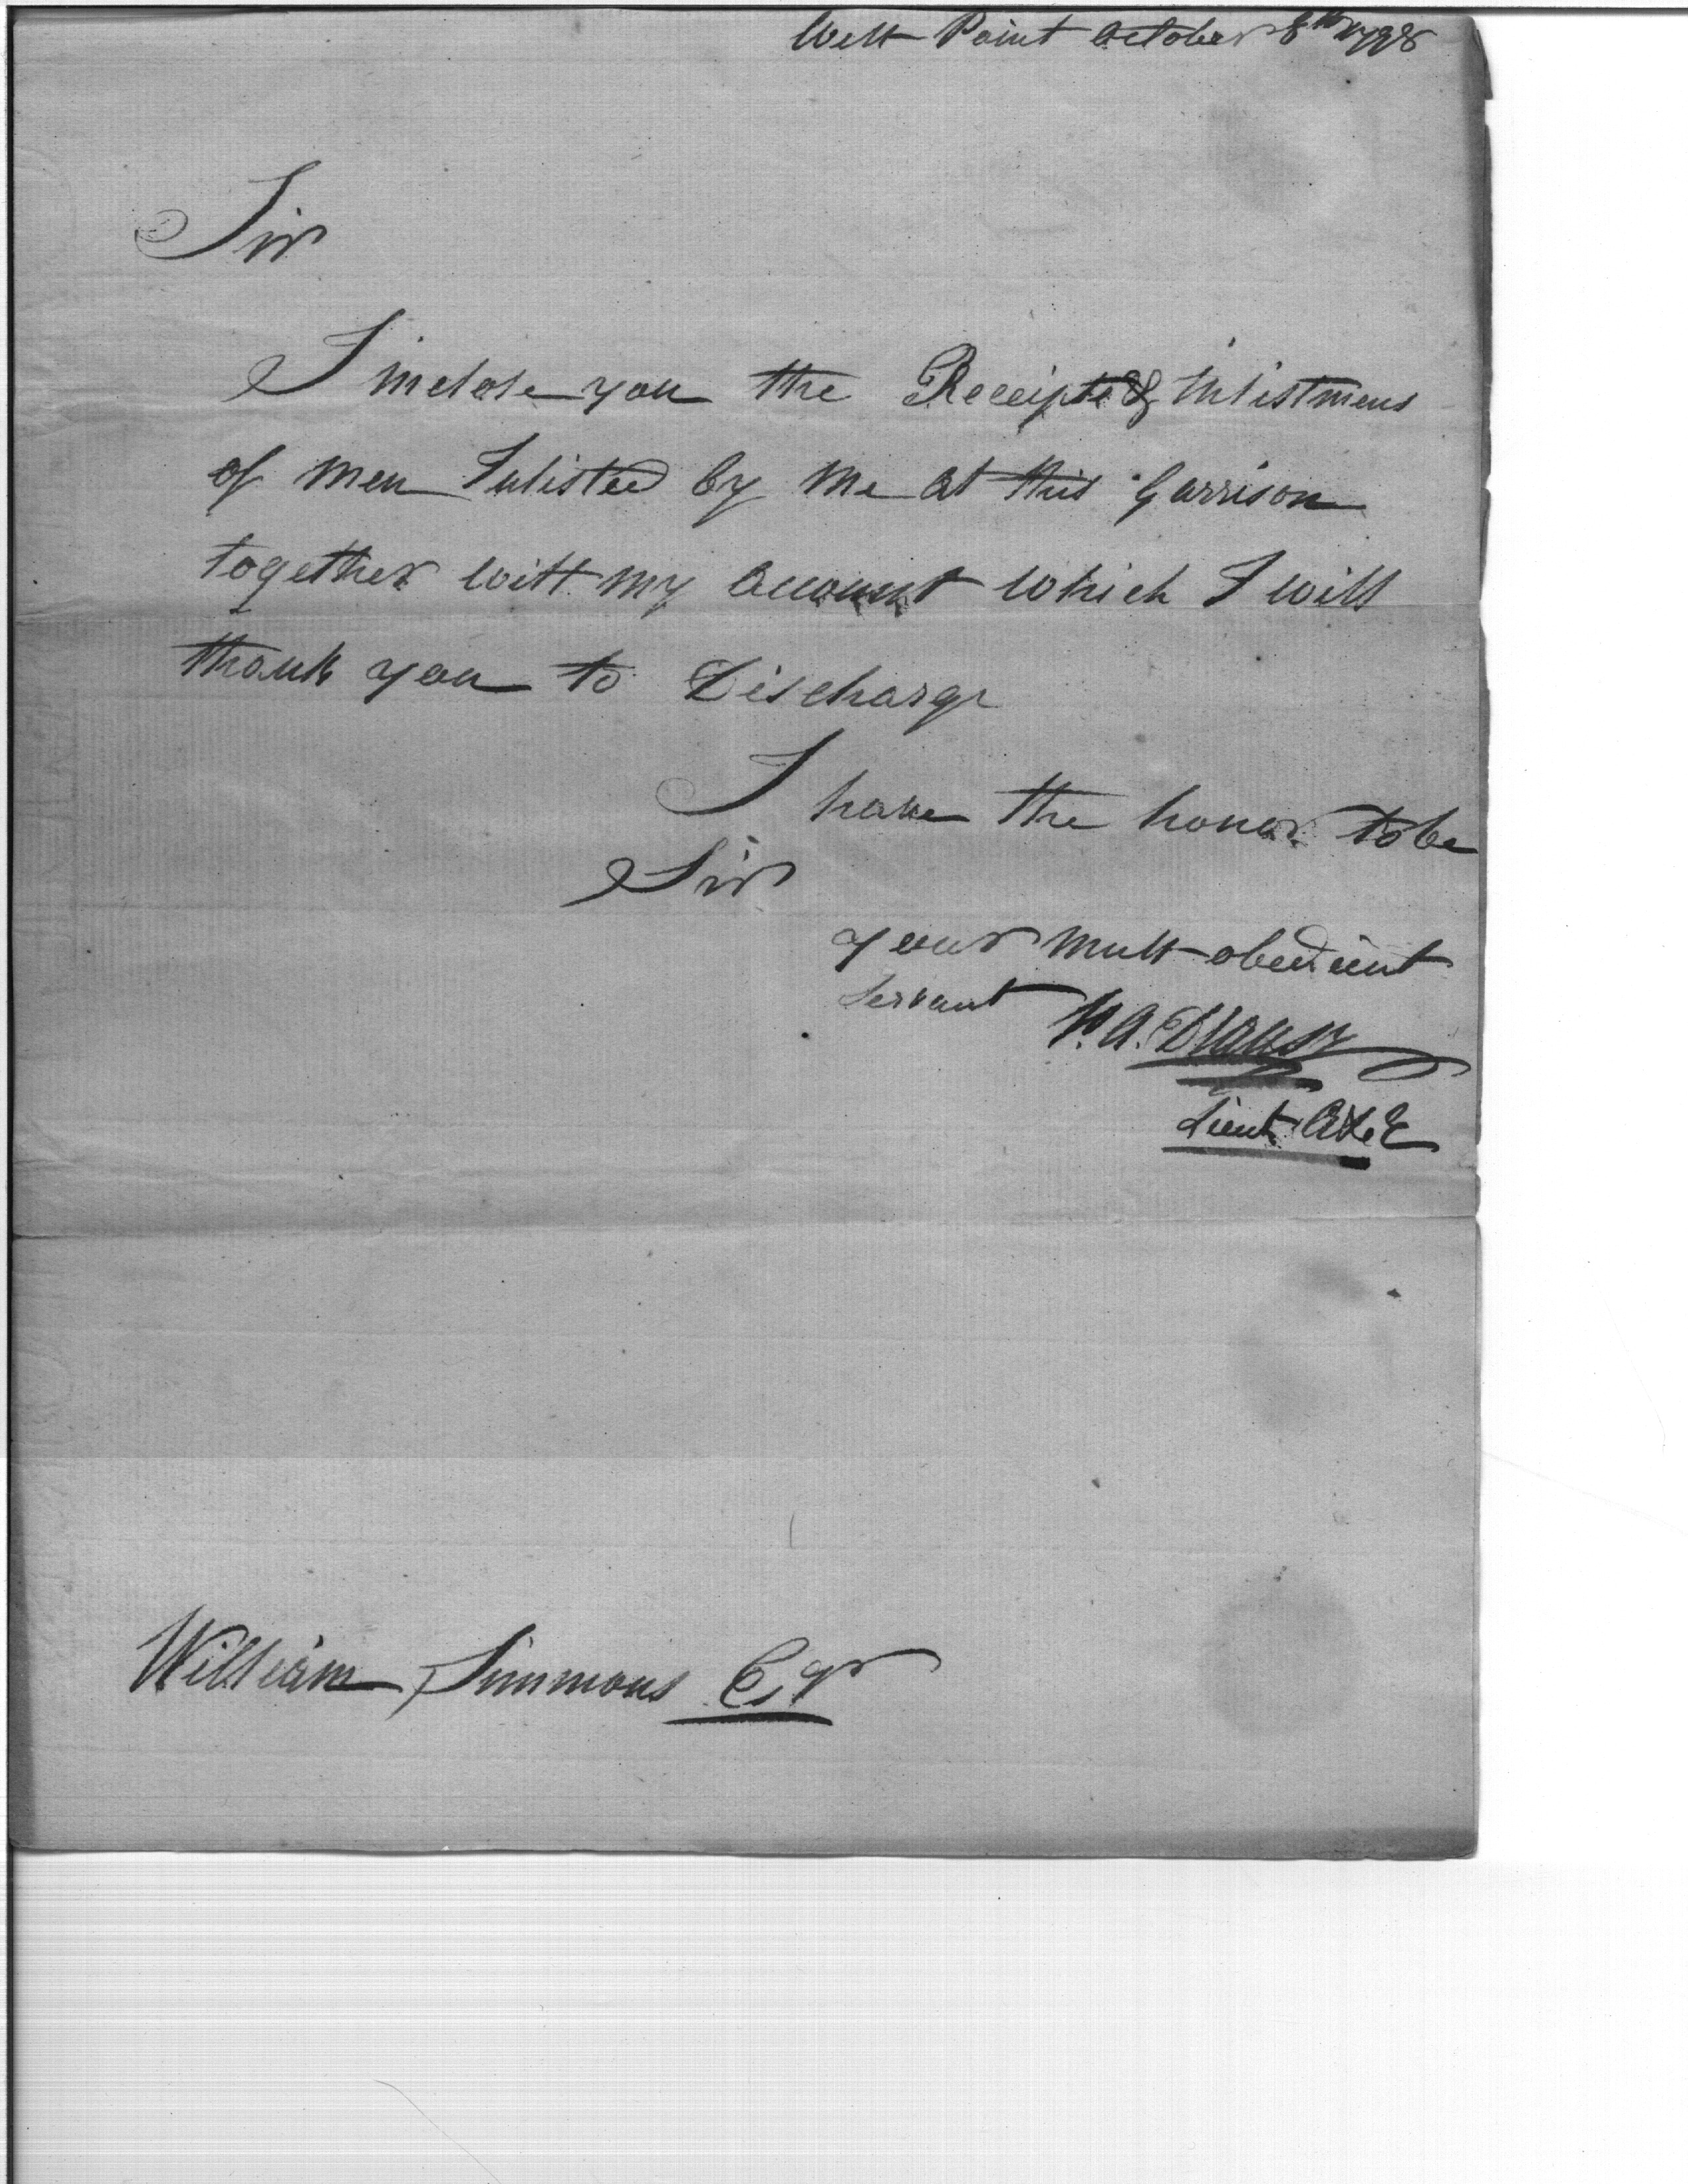 West Point October 8th 1798
Sir
I inclose you the Receipts & Inlistmens
of men Inlisted by me at this Garrison
together with my account which I will
thank you to Discharge
I have the honor to be
Sir
your most obedient
Servant P. A.
Lieut A & E
William Simmons Esqr